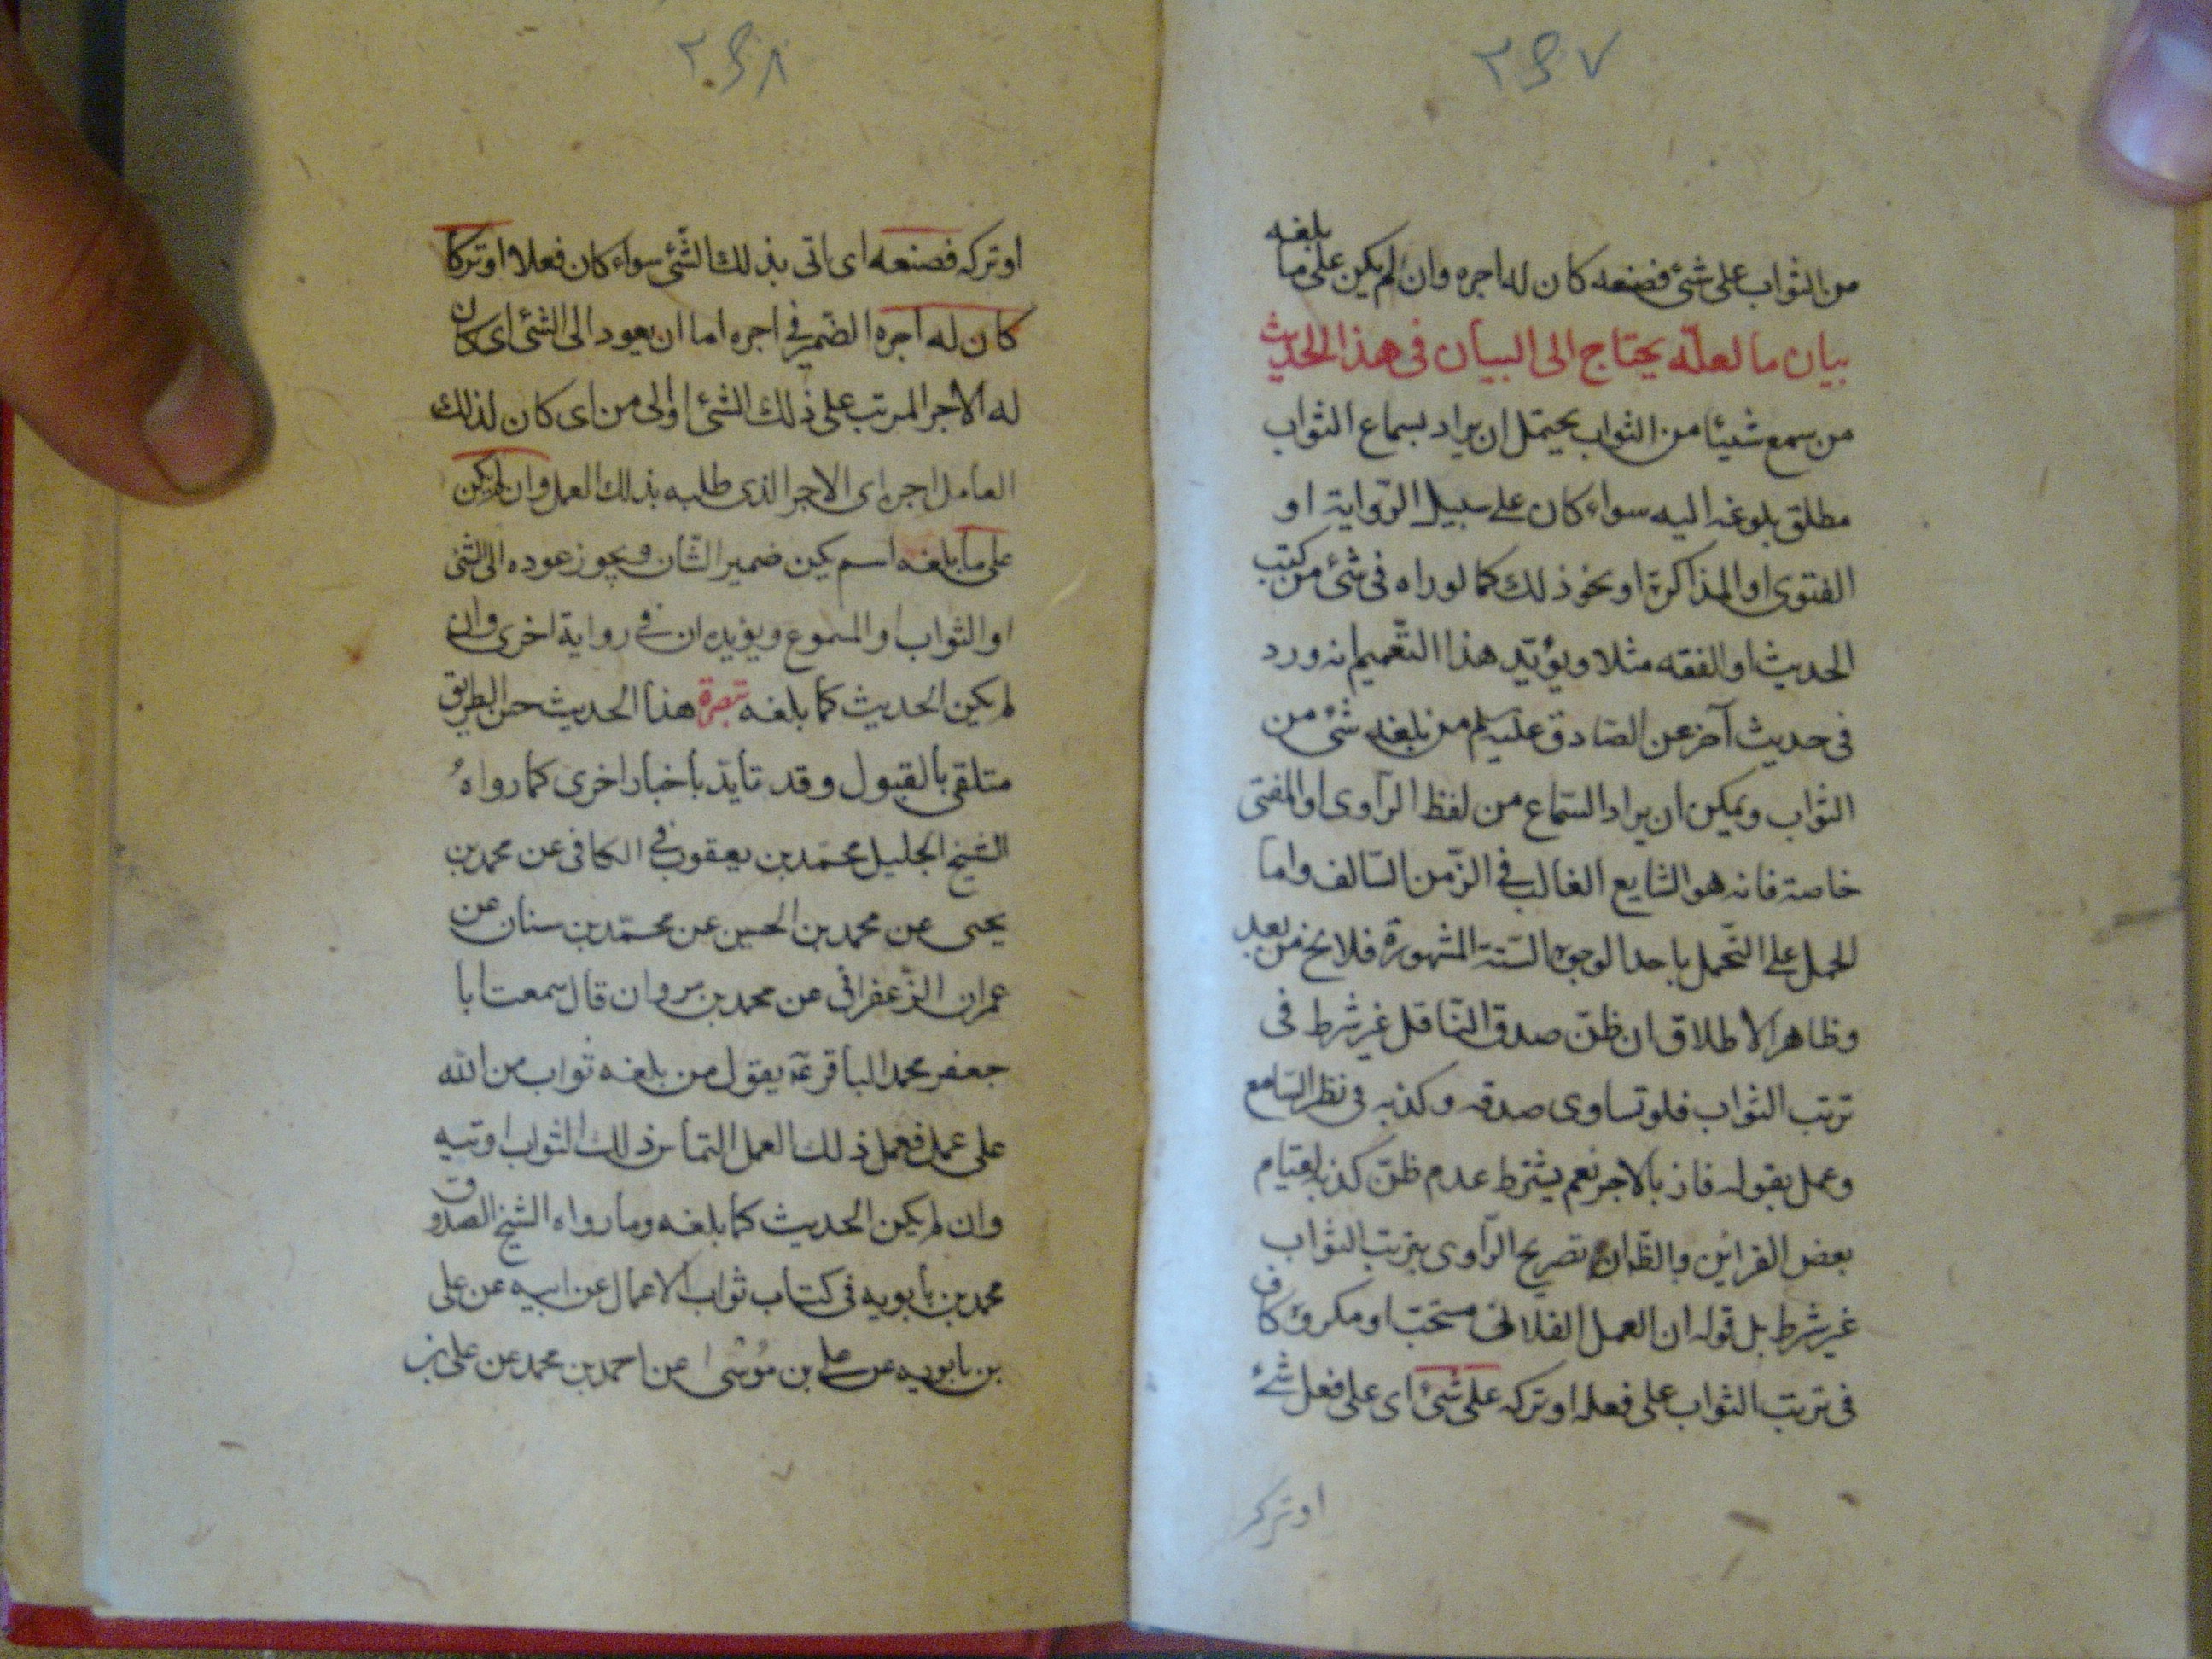 ٢٤٧
من الثواب على شئ فصنعه كان له اجره وان لم يكن على ما بلغه
بيان ما لعلّه يحتاج الى البيان فى هذا الحديث
من سمع شيئا من الثواب يحتمل ان يراد بسماع الثواب
مطلق بلوغه اليه سواء كان على سبيل الرّواية او
الفتوى او المذاكرة او نحو ذلك كما لو راه فى شئ من كتب
الحديث او الفقه مثلا ويؤيّد هذا التّعميم انه ورد
فى حديث آخر عن الصّادق عليه سلم من بلغه شئ من
الثواب ويمكن ان يراد السّماع من لفظ الرّاوى او المفتى
خاصة فانه هو الشايع الغالب فى الزّمن السّالف واما
الحمل على التّحمل باحد الوجوه السّتة المشهورة فلا يخ من بعد
وظاهر الاطلاق ان ظنّ صدق النّاقل غير شرط فى
ترتب الثواب فلو تساوى صدقه وكذبه فى نظر السّامع
وعمل بقوله فاز بالاجر نعم يشترط عدم ظنّ كذبه لقيام
بعض القراين والظّ ان تصريح الرّاوى بترتب الثواب
غير شرط بل قوله ان العمل الفلانى مستحب او مكروه كاف
فى ترتب الثواب على فعله او تركه على شئ اى على فعل شئ
او تركه
٢٤٨
او تركه فصنعه اى اتى بذلك الشّئ سواء كان فعلا او تركا
كان له اجره الضّمير فى اجره اما ان يعود الى الشئ اى كان
له الاجر المرتب على ذلك الشئ اولى من اى كان لذلك
العامل اجره اى الاجر الذى طلبه بذلك العمل وان لم يكن
على ما بلغه اسم يكن ضمير الشّان ويجوز عوده الى الشئ
او الثواب او المسموع ويؤيده ان فى رواية اخرى وان
لم يكن الحديث كما بلغه تبصرة هذا الحديث حسن الطريق
متلقى بالقبول وقد تأيّد باخبار اخرى كما رواهُ
الشيخ الجليل محمّد بن يعقوب فى الكافى عن محمد بن
يحيى عن محمد بن الحسين عن محمّد بن سنان عن
عمران الزّعفرانى عن محمد بن مروان قال سمعت ابا
جعفر محمد الباقر عۤ يقول من بلغه ثواب من الله
على عمل فعمل ذلك العمل التماس ذلك الثواب اوتيه
وان لم يكن الحديث كما بلغه وما رواه الشيخ الصدوق
محمد بن بابويه فى كتاب ثواب الاعمال عن ابيه عن على
بن بابويه عن على بن مُوسٰى عن احمد بن محمد عن على بن